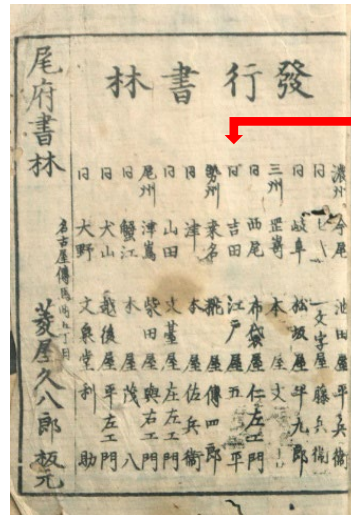 發行書林
濃州 今尾 池田屋平兵衞
同 一文字屋藤兵衞
同 岐阜 松坂屋平九郎
三州 本屋文
同 西尾 布袋屋仁左エ門
同 吉田 江戸屋五平
勢州 桑名 屋傳四郎
同 津 本屋佐兵衞
同 山田 文臺屋庄左エ門
尾州 津嶌 柴田屋與右エ門
同 蟹江 本屋茂八
同 犬山 越後屋平左エ門
同 大野 文泉堂利助
尾府書林 名古屋傳馬町五丁目 菱屋久八郎板元